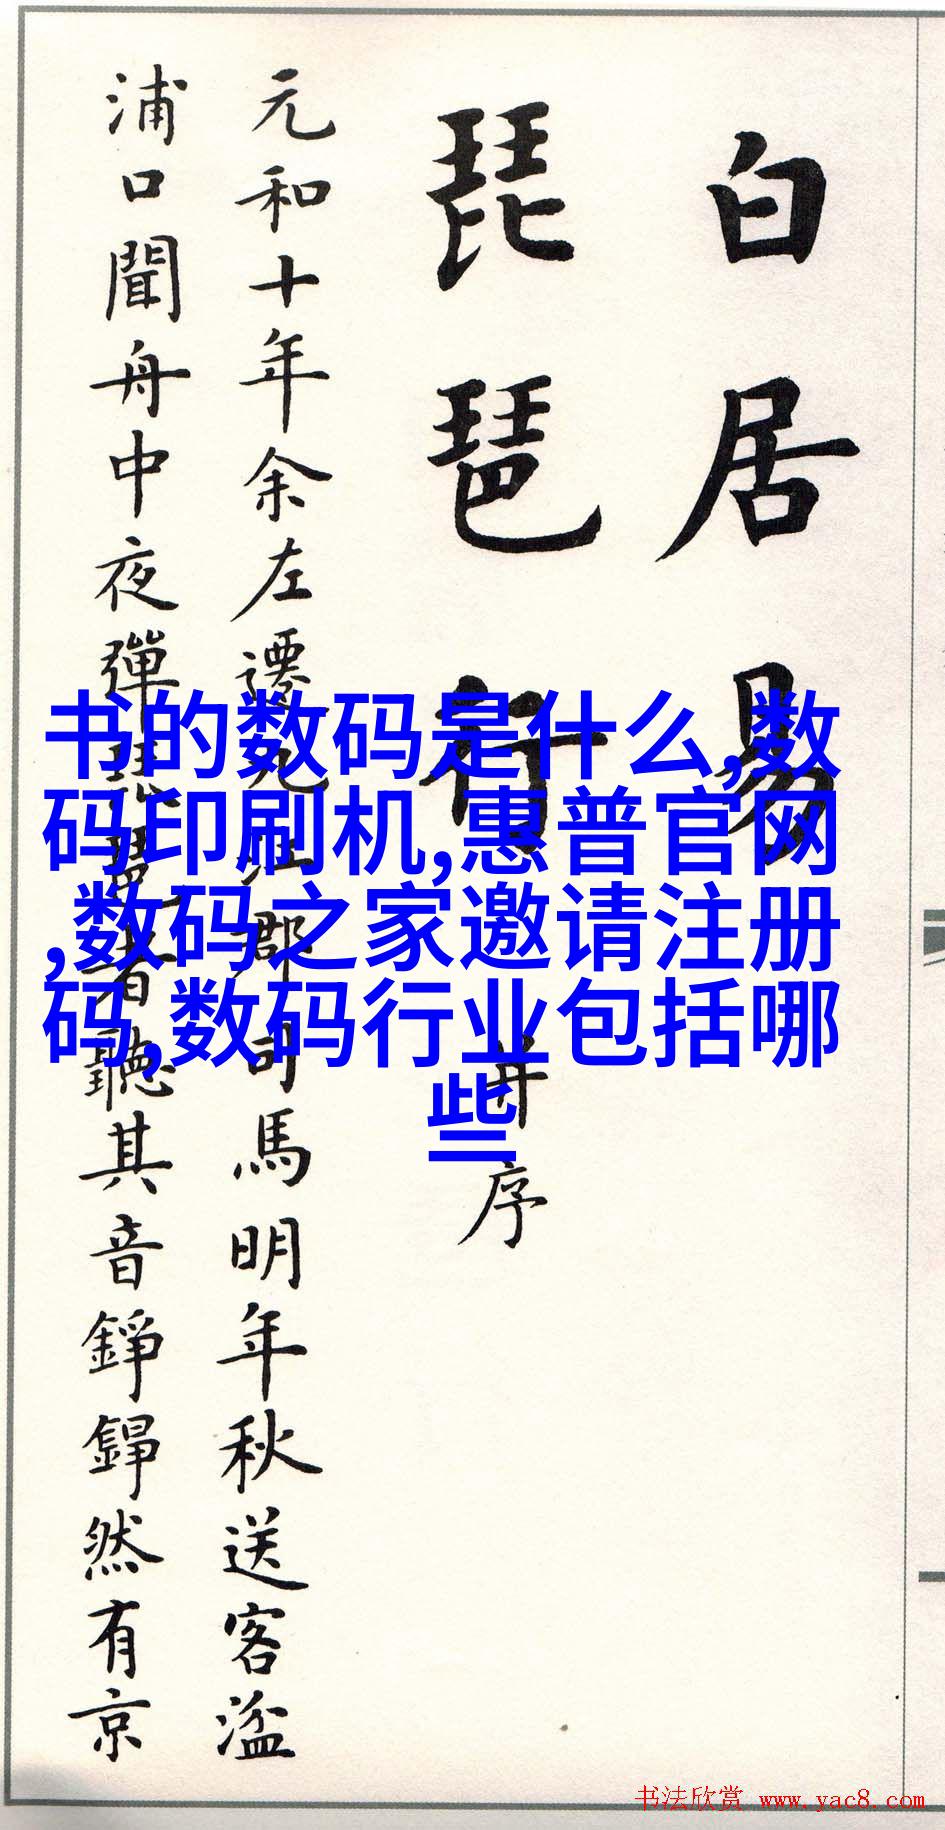 白居易
琵琶行
并序
元和十年余左遷九江郡司馬明年秋送客湓
浦口聞舟中夜彈琵琶者聽其音錚錚然有京
书的数码是什么,数
码印刷机,惠普官网
,数码之家邀请注册
码,数码行业包括哪
些
书法欣赏 www.yac8.com